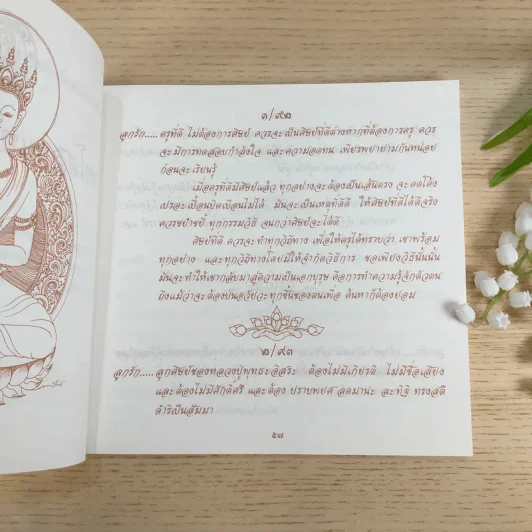 ๑/๙๒
ลูกรัก.....ครูที่ดี ไม่ต้องการศิษย์ ควรจะเป็นศิษย์ที่ดีต่างหากที่ต้องการครู ควร
จะมีการทดสอบกำลังใจ และความอดทน เพียรพยายามกันหน่อย
ก่อนจะเรียนรู้
เมื่อครูที่ดีมีศิษย์แล้ว ทุกอย่างจะต้องเป็นเส้นตรง จะคดโค้ง
เปรอะเปื้อนบิดเบือนไม่ได้ มันจะเป็นเหตุที่ดีดี ให้ศิษย์ที่ดีได้ดีจริง
ควรขยำขยี้ ทุกกรรมวิธี จนกว่าศิษย์จะได้ดี
ศิษย์ที่ดี ควรจะทำทุกวิถีทาง เพื่อให้ครูได้ทราบว่า เขาพร้อม
ทุกอย่าง และทุกวิถีทางโดยมิให้จำกัดวิธีการ ขอเพียงวิธีนั้นนั้น
มันจะทำให้เขากลับมาสู่ความเป็นเอกบุรุษ คือการทำความรู้จักตัวตน
ถึงแม้ว่าจะต้องป่นอวัยวะทุกชิ้นของตนเพื่อ ค้นหาก็ต้องยอม
๒/๙๓
ลูกรัก.....ลูกศิษย์ของหลวงปู่พุทธะอิสระ ต้องไม่มีเกียรติ ไม่มีชื่อเสียง
และต้องไม่มีศักดิ์ศรี และต้อง ปราบพยศ ลดมานะ ละทิฐิ ทรงสติ
ดำริเป็นสัมมา
๕๗